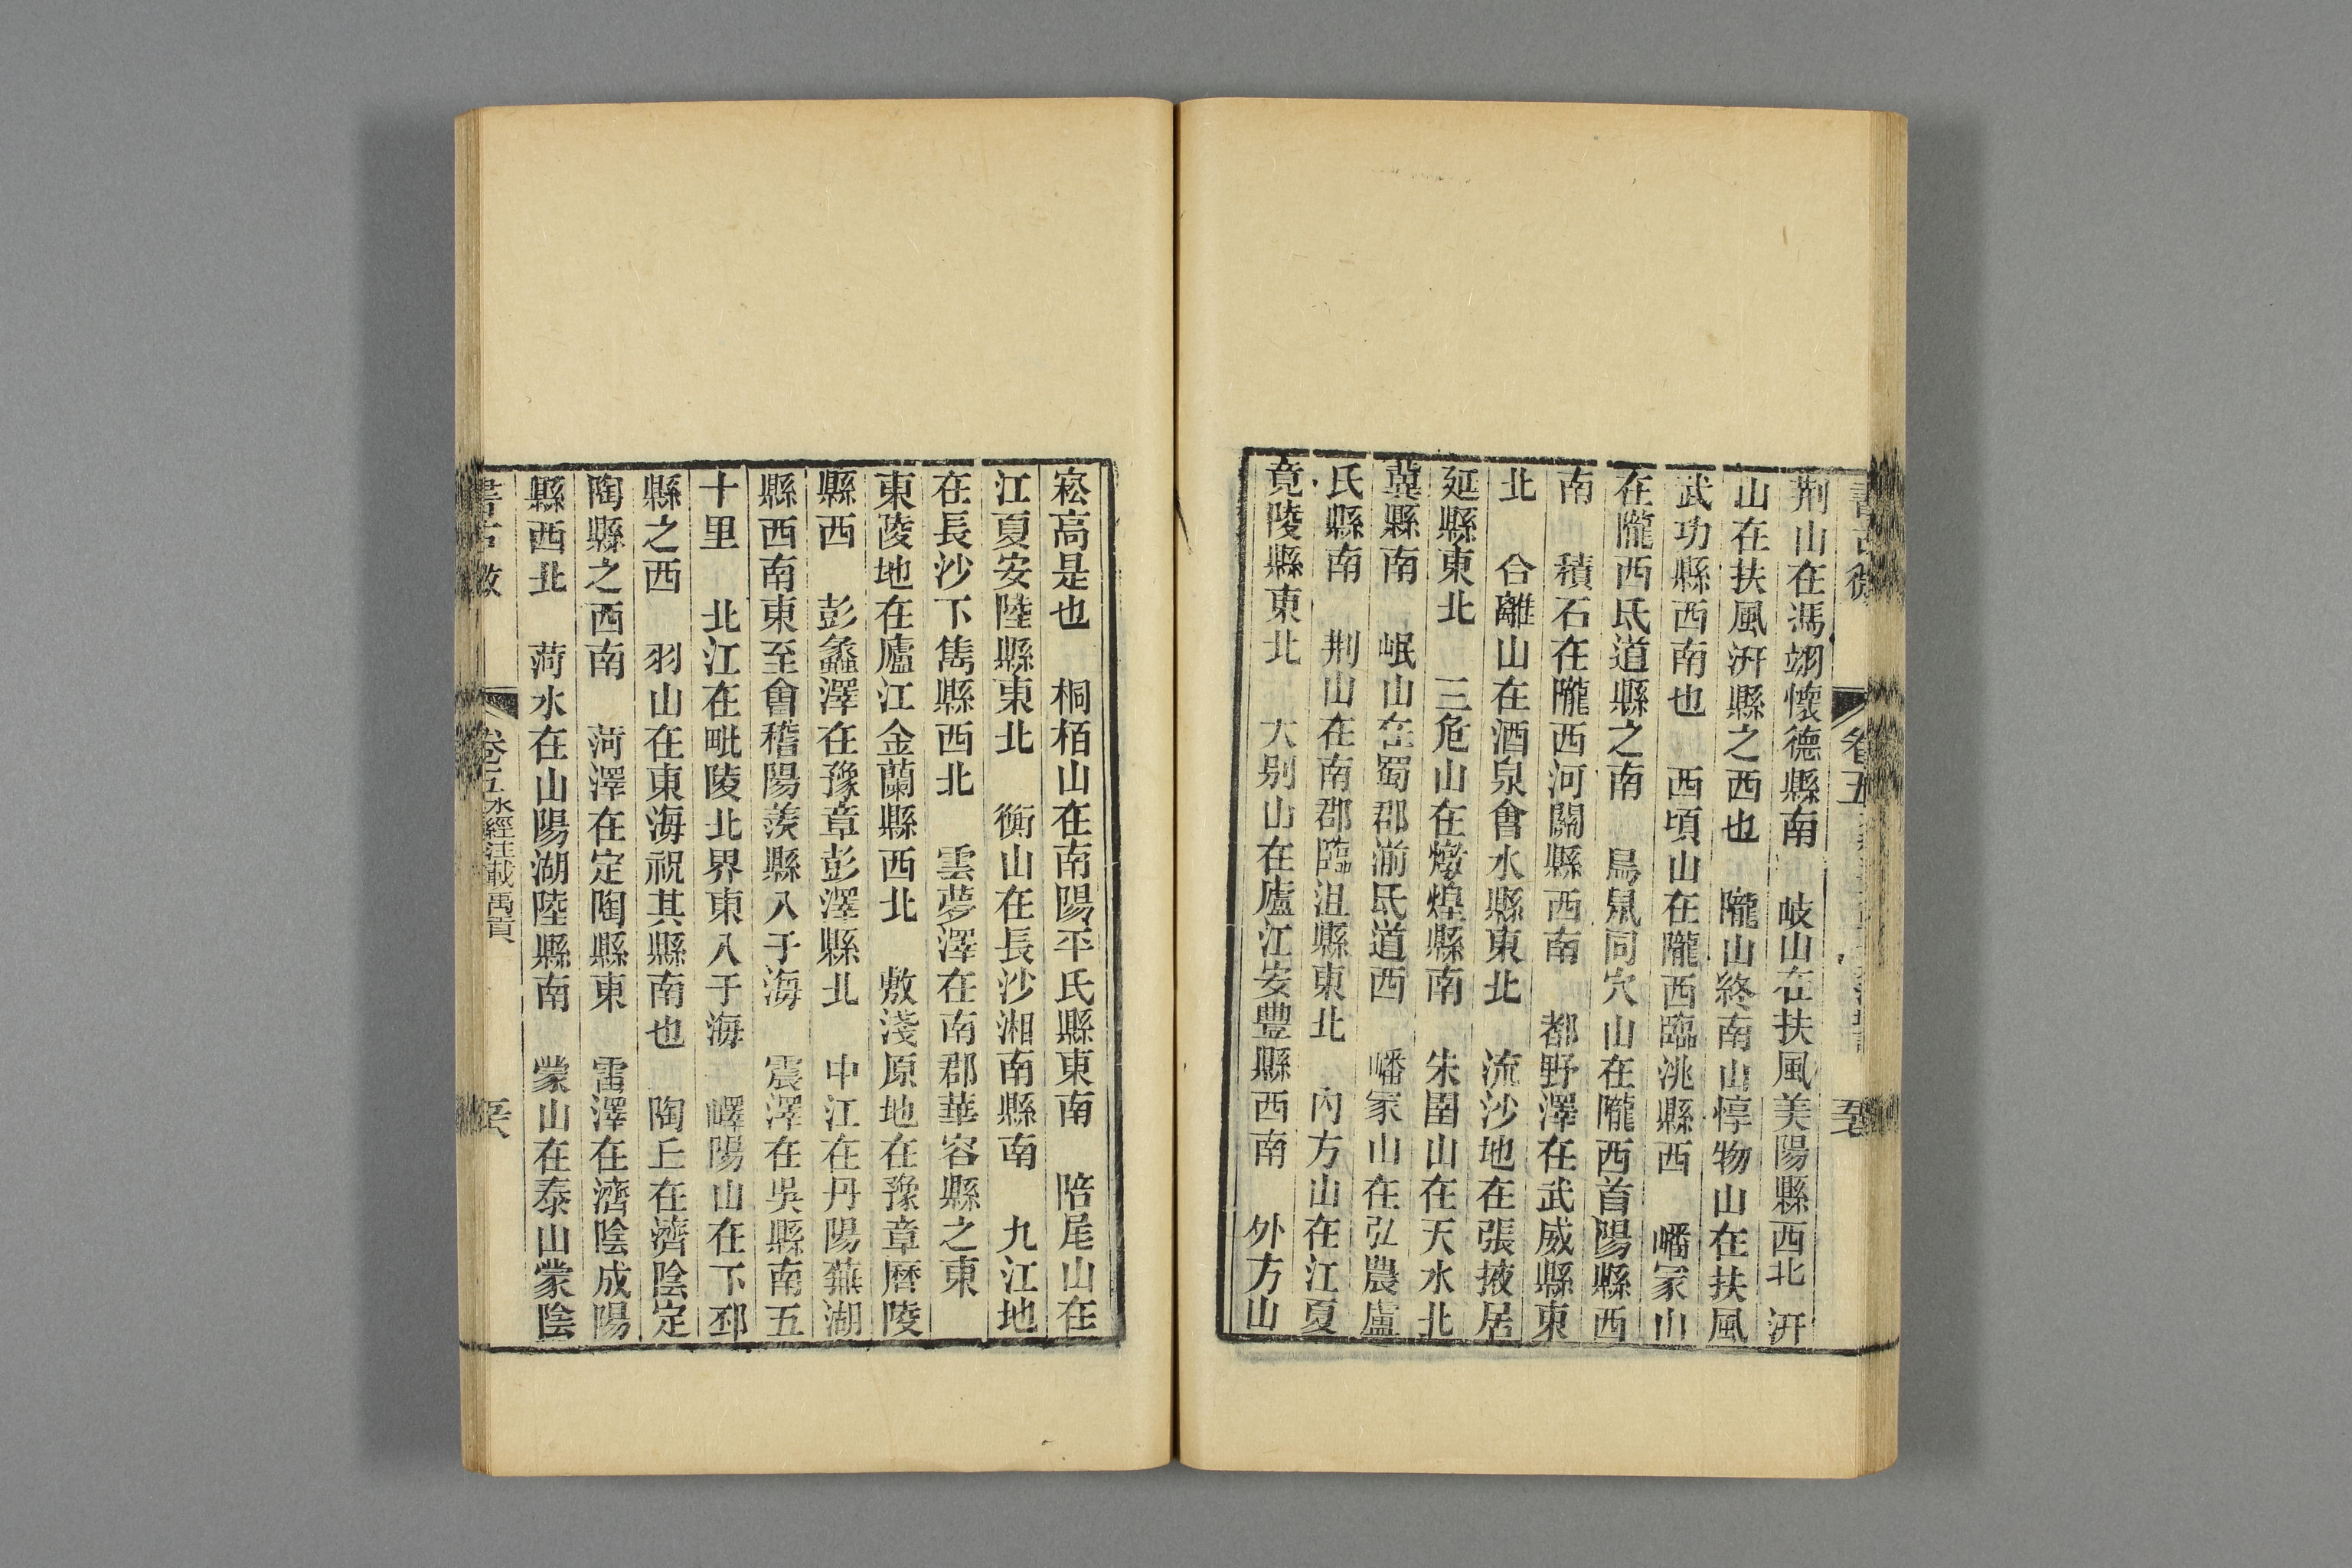 書古微
卷五
荆山在馮翊懷德縣南　岐山在扶風美陽縣西北　汧
山在扶風汧縣之西也　隴山終南山惇物山在扶風
武功縣西南也　西頃山在隴西臨洮縣西　嶓冢山
在隴西氐道縣之南　鳥鼠同穴山在隴西首陽縣西
南　積石在隴西河關縣西南　都野澤在武威縣東
北　合離山在酒泉會水縣東北　流沙地在張掖居
延縣東北　三危山在燉煌縣南　朱圉山在天水北
冀縣南　岷山在蜀郡湔氐道西　嶓冢山在弘農盧
氏縣南　荆山在南郡臨沮縣東北　內方山在江夏
竟陵縣東北　大别山在廬江安豐縣西南　外方山
崧高是也　桐栢山在南陽平氏縣東南　陪尾山在
江夏安陸縣東北　衡山在長沙湘南縣南　九江地
在長沙下雋縣西北　雲夢澤在南郡華容縣之東
東陵地在廬江金蘭縣西北　敷淺原地在豫章歷陵
縣西　彭蠡澤在豫章彭澤縣北　中江在丹陽蕪湖
縣西南東至會稽陽羨縣入于海　震澤在吳縣南五
十里　北江在毗陵北界東入于海　嶧陽山在下邳
縣之西　羽山在東海祝其縣南也　陶丘在濟陰定
陶縣之西南　菏澤在定陶縣東　雷澤在濟陰成陽
縣西北　菏水在山陽湖陸縣南　蒙山在泰山蒙陰
書古微
卷五 水經注載禹貢